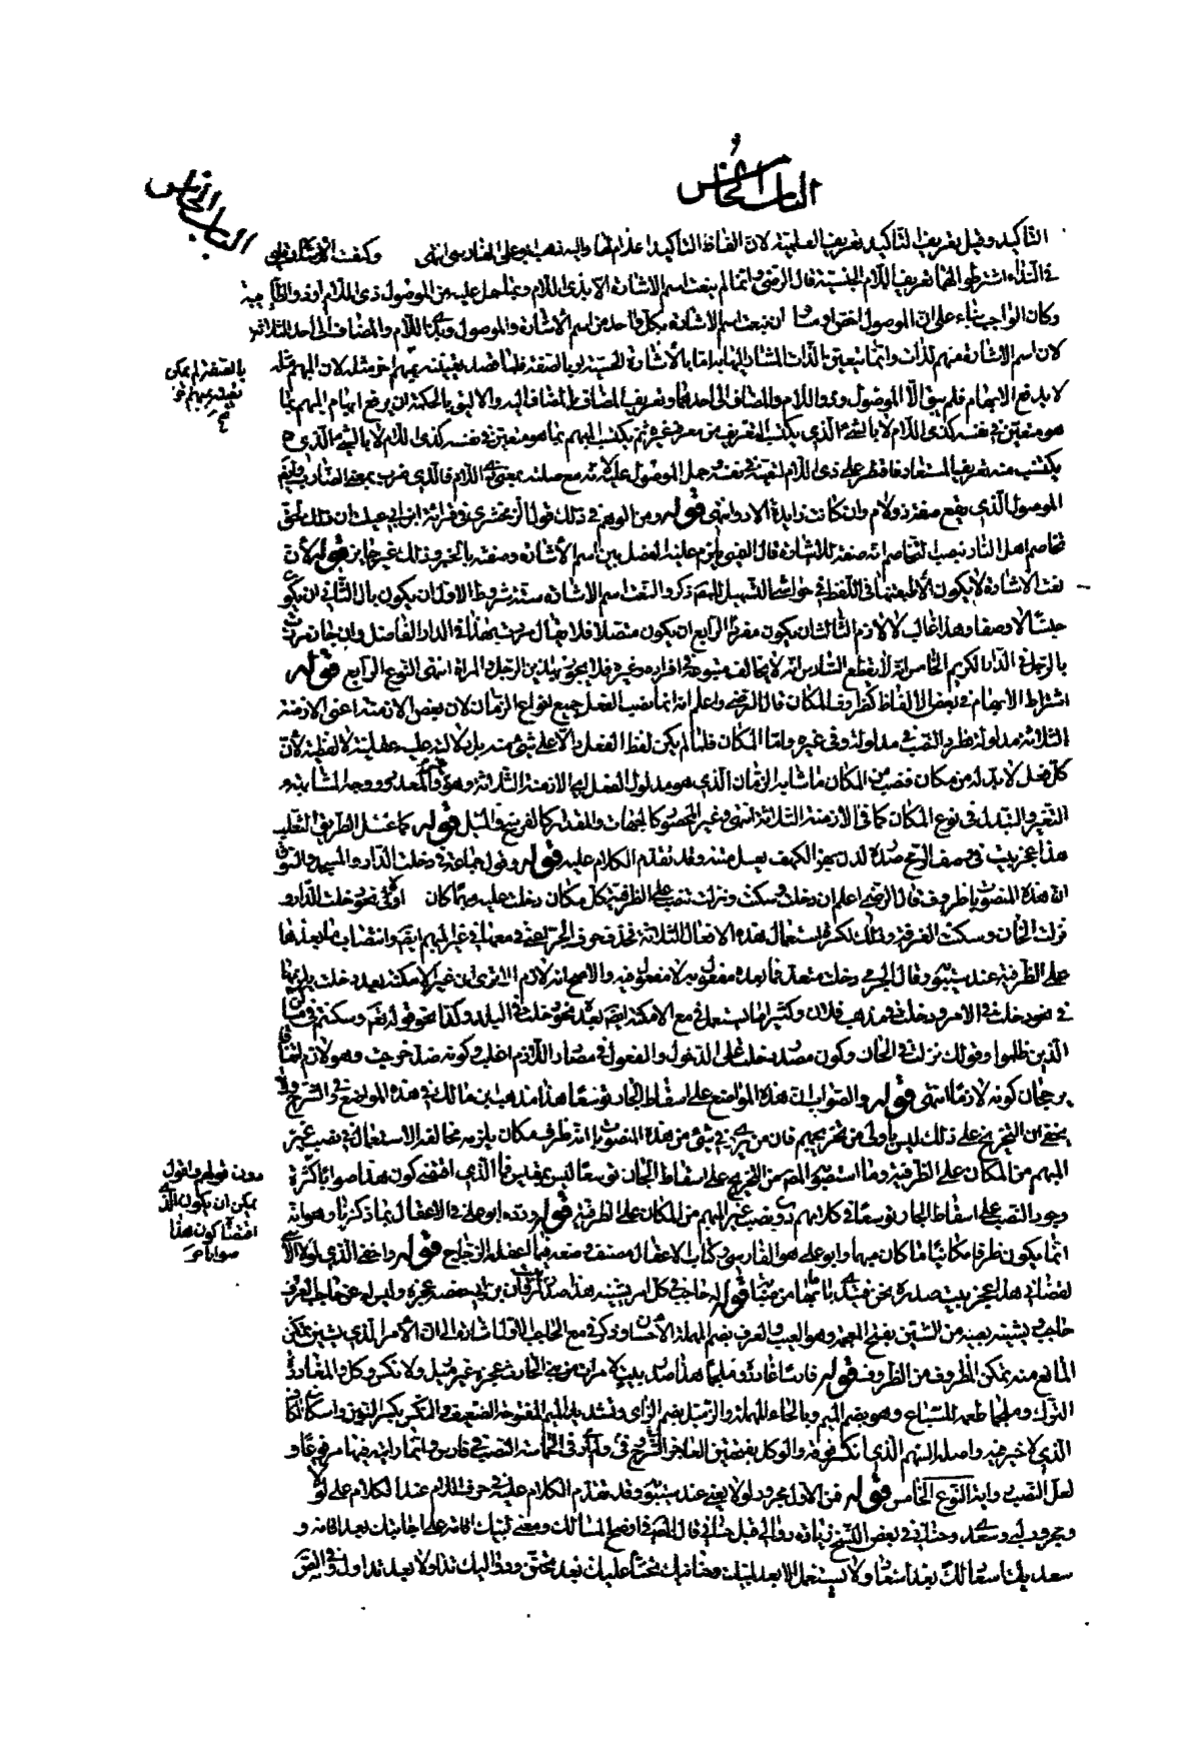 الباب الخامس
الباب الخامس
التأكيد وقيل تعريف التأكيد تعريف العلمية لان الفاظ التأكيد اعلام واليه ذهب ابو على الفارسى انتهى وكنعت الاشارة
في النداء اشترطوا لهما تعريف اللام الجنسية قال الرضى وانما لم ينعت اسم الاشارة الا بذى اللام وما حمل عليه من الموصول
وكان الواجب بناء على ان الموصوف اخص او مساو ان ينعت اسم الاشارة بكل واحد من اسم الاشارة والموصول وبذى اللام والمضاف الى احد الثلاثة
لان اسم الاشارة مبهم الذات وانما يتعين الذات المشار اليها به اما بالاشارة الحسية او بالصفة فلما قصد تعيينه لم يمكن بمبهم اخر مثله لان المبهم مثله
لا يرفع الابهام فلم يبق الا الموصول وذو اللام والمضاف الى احدهما وتعريف المضاف بالمضاف اليه والاليق بالحكمة ان يرفع ابهام المبهم بما
هو متعين في نفسه كذى اللام لا بالشئ الذي يكتسب التعريف من معرف غيره ثم يكتسب المبهم بما هو متعين في نفسه كذى اللام لا بالشئ الذي
يكتسب منه تعريفه المستعار فاقتصر على ذى اللام لتعينه في نفسه وحمل الموصول عليه لانه مع صلته بمعنى ذى اللام فالذي ضرب بمعنى الضارب
الموصول الذي يقع صفة ذو لام وان كانت زايدة انتهى قوله ومن الوهم في ذلك قول الزمخشرى في قراءة ابن ابي عبلة ان ذلك لحق
تخاصم اهل النار بنصب تخاصم انه صفة للاشارة قال يلزم عليه الفصل بين اسم الاشارة وصفته بالخبر وذلك غير جايز قوله لان
نعت الاشارة لا يكون الا طبقها في اللفظ في حواشى التسهيل للمص ذكروا لنعت اسم الاشارة ستة شروط الاول ان يكون بال الثانى ان يكون
جنسا لا وصفا وهذا غالب لا لازم الثالث ان يكون مفردا الرابع ان يكون متصلا فلا يقال مررت بهذا في الدار الفاضل وان جاز مررت
بالرجل في الدار الكريم الخامس انه لا يقطع السادس انه لا يخالف متبوعه في افراده وغيره فلا يجوز بهذين الرجل والمراة انتهى النوع الرابع قوله
اشتراط الابهام في بعض الالفاظ كظروف المكان قال الرضى واعلم انه انما نصب الفعل جميع انواع الزمان لان بعض الازمنة اعنى الازمنة
الثلاثة مدلوله فطرد النصب في مدلوله وفي غيره واما المكان فلما لم يكن لفظ الفعل دالا على شئ منه بل دلالته عليه عقلية لا لفظية لان
كل فعل لا بد له من مكان فنصب من المكان ما شابه الزمان الذي هو مدلول الفعل اى الازمنة الثلاثة وهو غير المحصور والمعدود ووجه المشابهة
التغير والتبدل في نوع المكان كما في الازمنة الثلاثة انتهى وغير المحصور كالجهات والمقدر كالفرسخ والميل قوله كما عسل الطريق الثعلب
هذا عجز بيت في وصف الرمح صدره لدن بهز الكف يعسل متنه وقد تقدم الكلام عليه قوله وقول جماعة في دخلت الدار والمسجد والسوق
ان هذه المنصوبات ظروف قال الرضى اعلم ان دخلت وسكنت ونزلت تنصب على الظرفية كل مكان دخلت عليه مبهما كان او لا نحو دخلت الدار و
نزلت الخان وسكنت الغرفة وذلك لكثرة استعمال هذه الافعال الثلاثة فحذف حرف الجر اعنى في معها في غير المبهم ايضا وانتصاب ما بعدها
على الظرفية عند سيبويه وقال الجرمى دخلت متعد فما بعده مفعول به لا مفعول فيه والاصح انه لازم الا ترى ان غير الامكنة بعد دخلت يلزمها
في نحو دخلت في الامر ودخلت في مذهب فلان وكثيرا ما يستعمل في مع الامكنة ايضا بعده نحو دخلت في البلد وكذا نحو قوله تعم وسكنتم في مساكن
الذين ظلموا وقولك نزلت في الخان وكون مصدر دخلت على الدخول والفعول في مصادر اللازم اغلب وكونه ضد خرجت وهو لازم اتفاقا
يرجحان كونه لازما انتهى قوله والصواب ان هذه المواضع على اسقاط الجار توسعا هذا مذهب ابن مالك في هذه المواضع وفى الشرح ولا
يخفى ان التخريج على ذلك ليس باولى من تخريجهم فان من يرى في شئ من هذه المنصوبات انه ظرف مكان يلزمه مخالفة الاستعمال في نصب غير
المبهم من المكان على الظرفية وما استصوبه المص من التخريج على اسقاط الجار توسعا ليس بمقيس فما الذي اقتضى كون هذا صوابا كثرة
وجود النصب على اسقاط الجار توسعا في كلامهم دون نصب غير المبهم من المكان على الظرفية قوله ورده ابو على في الاغفال بما ذكرنا وهو انه
انما يكون ظرفا مكانيا ما كان مبهما وابو على هو الفارسى وكتاب الاغفال مصنف صنعه فيما اغفله الزجاج قوله واخفى الذي لولا الاسى
لقضانى هذا عجز بيت صدره تحن فتبدى ما بها من صبابة قوله له حاجب في كل امر يشينه هذا صدر عجزه وليس له عن طالب العرف
حاجب يشينه يعيبه من الشين بفتح المعجمة وهو العيب والعرف بضم المهملة الاحسان وذكر في مع الحاجب الاول اشارة الى ان الامر الذي يشين تمكن
المانع منه تمكن المظروف من الظروف قوله فارسا ما غادروه ملحما هذا صدر بيت لامراة من بنى الحارث عجزه غير زميل ولا نكس وكل والمغادرة
الترك وملحما طعمه للسباع وهو بضم الميم وبالحاء المهملة والزميل بضم الزاى وتشديد الميم المفتوحة الضعيف والنكس بكسر النون واسكان الكاف
الذي لا خير فيه واصله السهم الذي انكسر فوقه والوكل بفتحتين العاجز وفى الشرح في الحماسة النصب في فارس وانما رايته فيها مرفوعا و
لعل النصب رواية النوع الخامس قوله فمن الاول مجرور لولا يعنى عند سيبويه وقد تقدم الكلام عليه في حرف اللام عند الكلام على لولا
ومجرور لبى وسعدى وحنانى في بعض النسخ زيادة دوالى قبل حنانى قال المص في اوضح المسالك ومعنى لبيك اقامة على اجابتك بعد اقامة و
سعديك اسعادا لك بعد اسعاد ولا يستعمل الا بعد لبيك وحنانيك تحننا عليك بعد تحنن ودواليك تداولا بعد تداول
بالصفة لم يمكن
تعيينه بمبهم اخر
دون قولهم اقول
يمكن ان يكون الذى
اقتضا كون هذا
صوابا